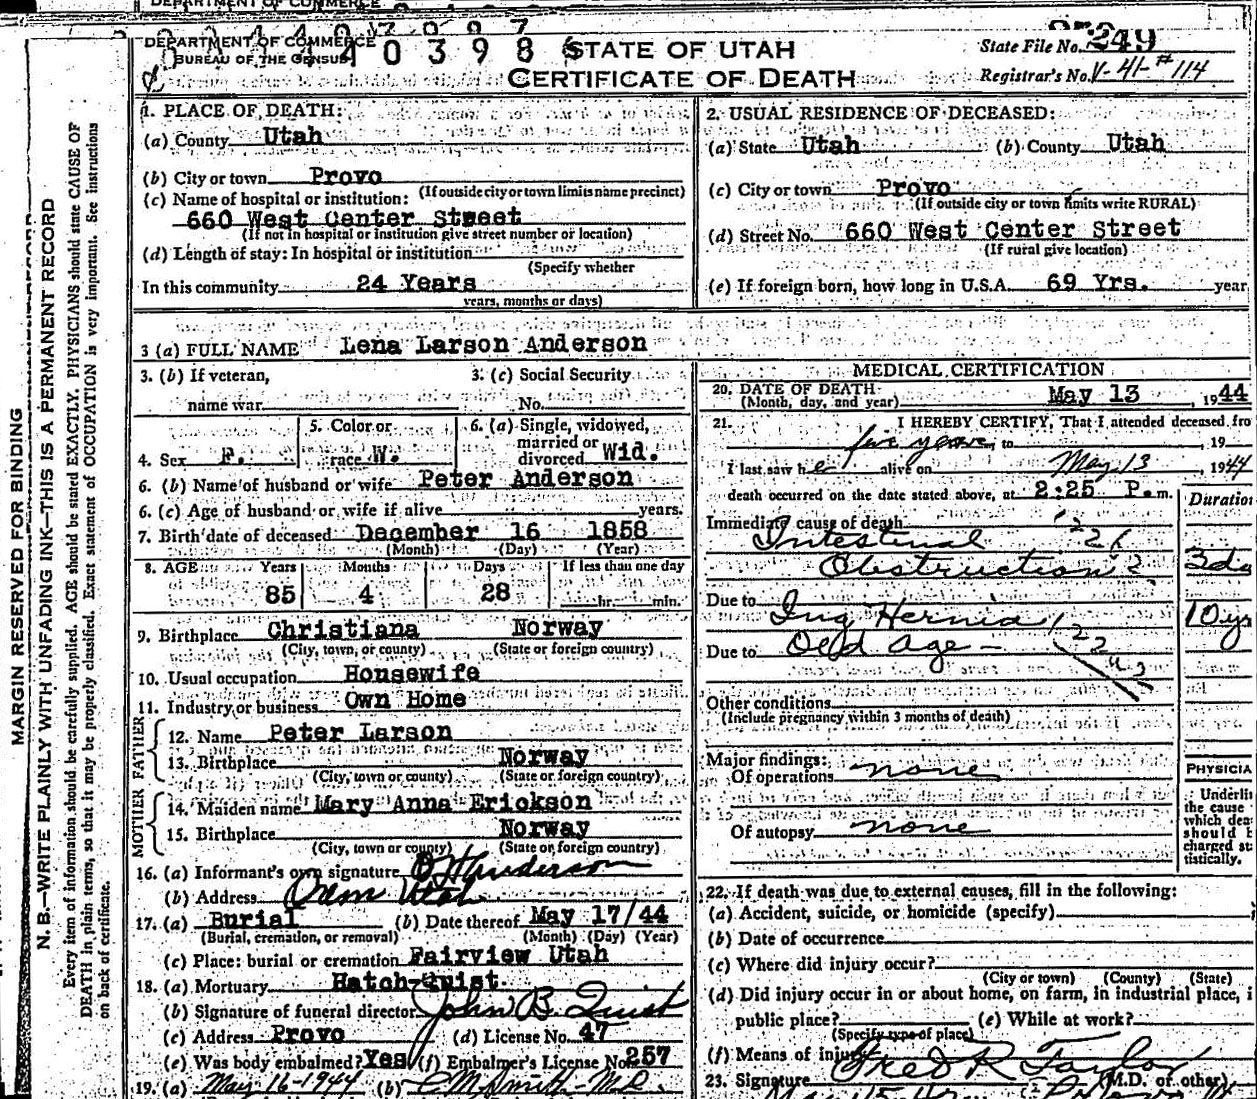 DEPARTMENT OF COMMERCE
BUREAU OF THE CENSUS
40398
STATE OF UTAH
CERTIFICATE OF DEATH
State File No. 249
Registrar's No. V-41-#114
MARGIN RESERVED FOR BINDING
N. B.—WRITE PLAINLY WITH UNFADING INK—THIS IS A PERMANENT RECORD
Every item of information should be carefully supplied. AGE should be stated EXACTLY. PHYSICIANS should state CAUSE OF
DEATH in plain terms, so that it may be properly classified. Exact statement of OCCUPATION is very important. See instructions
on back of certificate.
1. PLACE OF DEATH:
(a) County Utah
(b) City or town Provo
(If outside city or town limits name precinct)
(c) Name of hospital or institution:
660 West Center Street
(If not in hospital or institution give street number or location)
(d) Length of stay: In hospital or institution
(Specify whether
In this community 24 Years
years, months or days)
2. USUAL RESIDENCE OF DECEASED:
(a) State Utah (b) County Utah
(c) City or town Provo
(If outside city or town limits write RURAL)
(d) Street No. 660 West Center Street
(If rural give location)
(e) If foreign born, how long in U.S.A. 69 Yrs. year
3 (a) FULL NAME Lena Larson Anderson
3. (b) If veteran,
name war
3. (c) Social Security
No.
4. Sex F.
5. Color or
race W.
6. (a) Single, widowed,
married or
divorced Wid.
6. (b) Name of husband or wife Peter Anderson
6. (c) Age of husband or wife if alive years.
7. Birth date of deceased December 16 1858
(Month) (Day) (Year)
8. AGE Years Months Days If less than one day
85 4 28 hr. min.
9. Birthplace Christiana Norway
(City, town, or county) (State or foreign country)
10. Usual occupation Housewife
11. Industry or business Own Home
FATHER
12. Name Peter Larson
13. Birthplace Norway
(City, town or county) (State or foreign country)
MOTHER
14. Maiden name Mary Anna Erickson
15. Birthplace Norway
(City, town or county) (State or foreign country)
16. (a) Informant's own signature Anderson
(b) Address Orem Utah
17. (a) Burial (b) Date thereof May 17/44
(Burial, cremation, or removal) (Month) (Day) (Year)
(c) Place: burial or cremation Fairview Utah
18. (a) Mortuary Hatch-Quist
(b) Signature of funeral director John B. Quist
(c) Address Provo (d) License No. 47
(e) Was body embalmed? Yes (f) Embalmer's License No. 257
19. (a) May 16-1944 (b) Smith M.D.
MEDICAL CERTIFICATION
20. DATE OF DEATH May 13, 1944
(Month, day, and year)
21. I HEREBY CERTIFY, That I attended deceased fro
five years, to , 19
I last saw her alive on May 13 1944
death occurred on the date stated above, at 2:25 P. m.
Duration
Immediate cause of death
Intestinal
Obstruction 3da
Due to Ing Hernia 10 ys
Due to Old Age -
Other conditions
(Include pregnancy within 3 months of death)
Major findings:
Of operations none
Of autopsy none
PHYSICIA
Underli
the cause
which dea
should b
charged st
tistically.
22. If death was due to external causes, fill in the following:
(a) Accident, suicide, or homicide (specify)
(b) Date of occurrence
(c) Where did injury occur?
(City or town) (County) (State)
(d) Did injury occur in or about home, on farm, in industrial place, i
public place? (e) While at work?
(Specify type of place)
(f) Means of injury
23. Signature Fred R Taylor (M.D. or other)